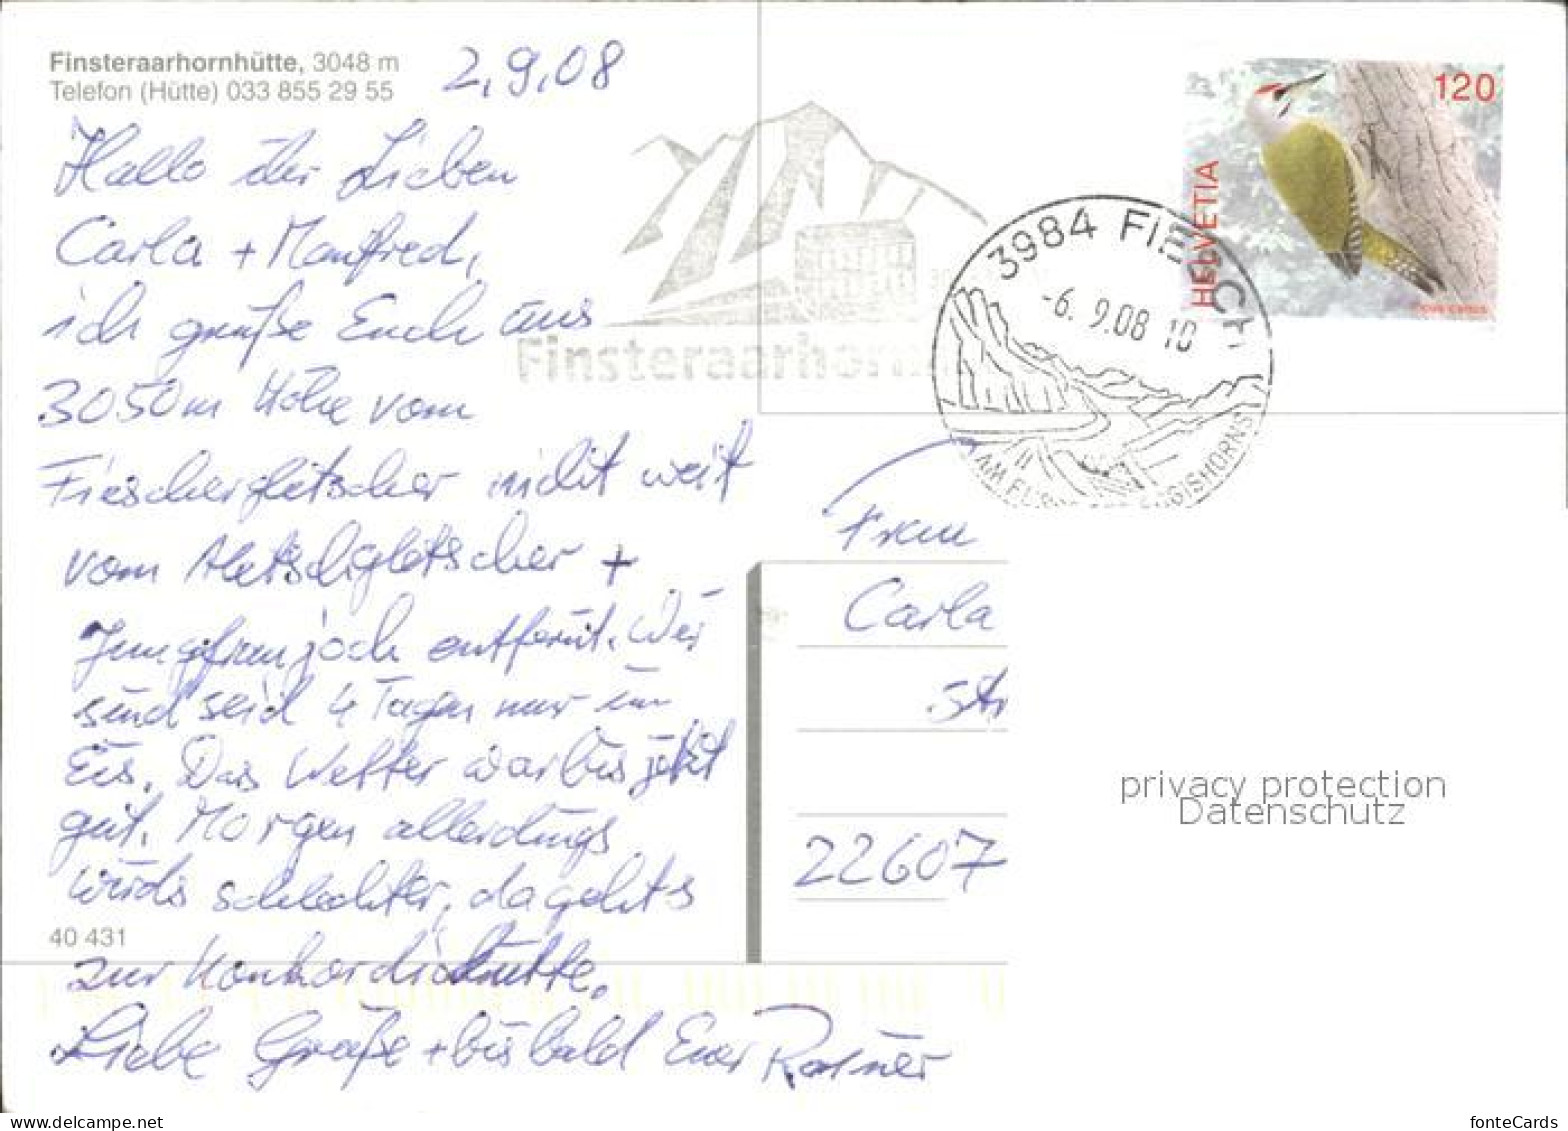 Finsteraarhornhütte, 3048 m
Telefon (Hütte) 033 855 29 55
2.9.08
Hallo ihr Lieben
Carla + Manfred,
ich grüße Euch aus
3050m Höhe vom
Fieschergletscher nicht weit
vom Aletschgletscher +
Jungfraujoch entfernt. Wir
sind seid 4 Tagen nur im
Eis. Das Wetter war bis jetzt
gut. Morgen allerdings
wirds schlechter, da gehts
zur Konkordiahütte.
Liebe Grüße + bis bald Euer Rainer
40 431
Finsteraarhorn
HELVETIA
120
3984 FIESCH
-6. 9.08 10
AM FUSSE DES EGGISHORNS
Frau
Carla
Str
22607
privacy protection
Datenschutz
www.delcampe.net
fonteCards